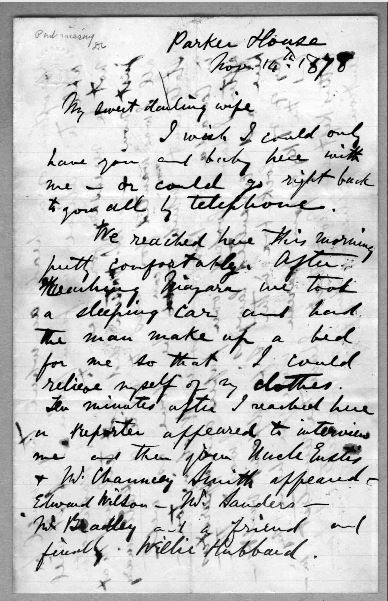 Parker House
Nov. 14th 1878
My sweet darling wife
I wish I could only
have you and baby here with
me — Or could go right back
to you all by telephone.
We reached here this morning
comfortably. After
reaching Niagara we took
a sleeping car and had
the man make up a bed
for me so that I could
relieve myself of my clothes.
Ten minutes after I reached here
a Reporter appeared to interview
me and then Uncle Eustis
& Mr. Chauncey Smith appeared —
Edward Wilson — Mr. Sanders —
Mr. Bradley and a friend and
finally Willie Hubbard.